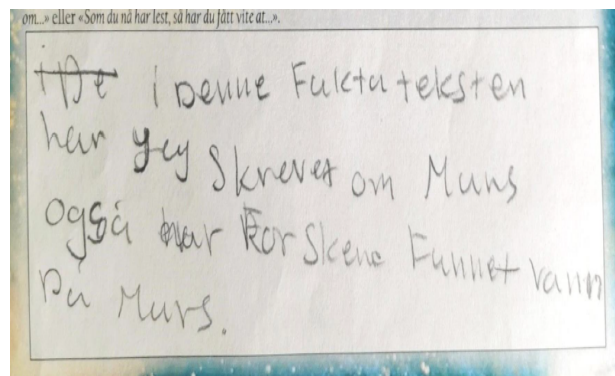 om...» eller «Som du nå har lest, så har du fått vite at...».
i De i Denne Faktateksten
har yey Skrevet om Mars
også har Forskene Funnet vann
På Mars.